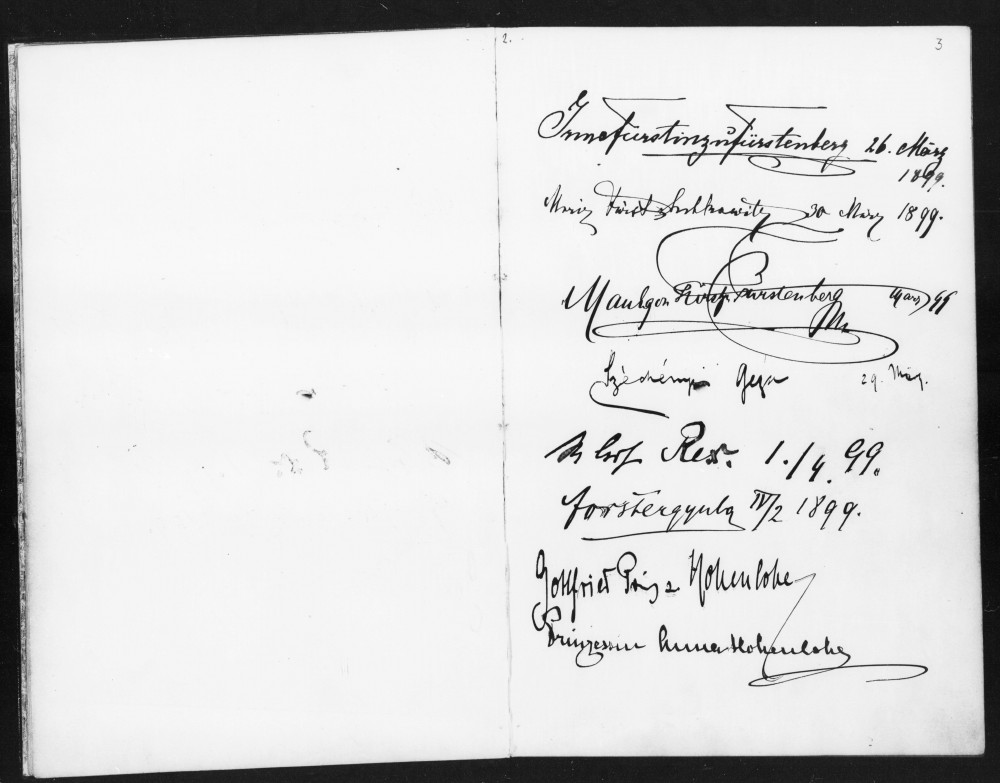 2.
3
Irmafürstinzufürstenberg 26. März
1899.
Fürst Lobkowitz 30 März 1899.
Fürst Fürstenberg März 99
Széchényi Géza 29. März.
Rex. 1./4. 99.
Forstergyula IV/2 1899.
Gottfried Prinz Hohenlohe
Prinzessin Anna Hohenlohe